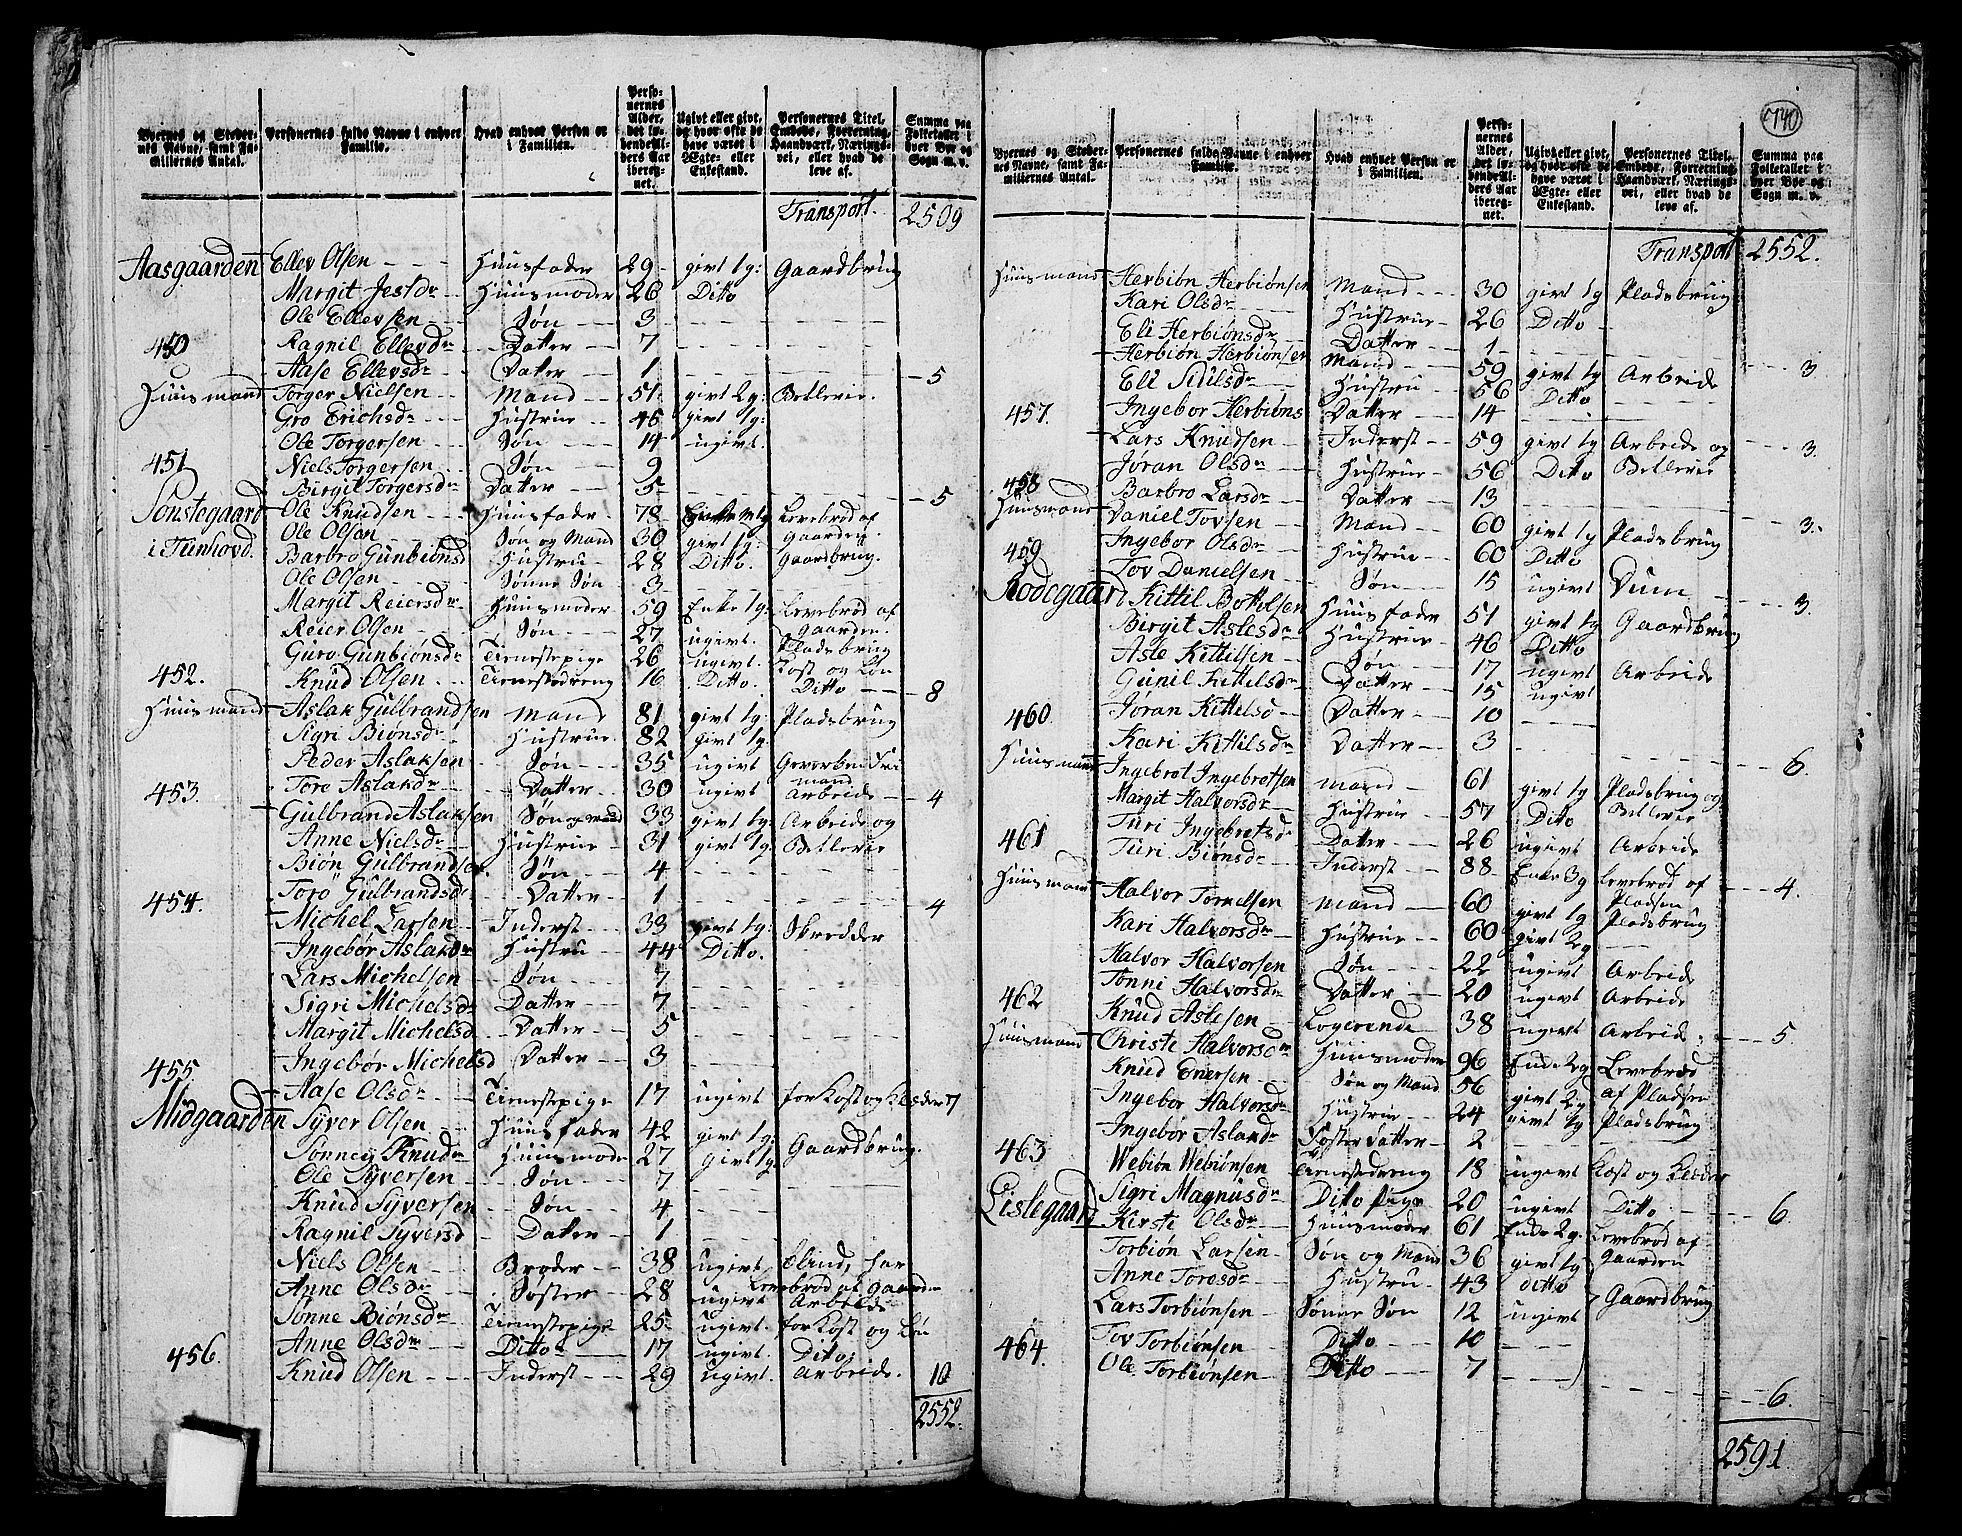 740
Byernes og Stedernes Navne, samt Familiernes Antal. | Personernes fulde Navne i enhver Familie. | Hvad enhver Person er i Familien. | Personernes Alder, det løbende Alders Aar iberegnet. | Ugivt eller givt, og hvor ofte de have været i Ægte- eller Enkestand. | Personernes Titel, Embede, Forretning, Haandværk, Næringsvei, eller hvad de leve af. | Summa paa Folketallet i hver Bye og Sogn m. v.
Transport. 2509
Aasgaarden Ellev Olsen Huusfader 29 givt 1g: Gaardbrug
Margit Jestdr Huusmoder 26 Ditto
Ole Ellevsen Søn 3
450 Ragnil Ellevdr Datter 7
Aase Ellevsdr Datter 1 5
Huusmand Torger Nielsen Mand 51 givt 2g: Betlerie
Gro Erichsdr Hustrue 46 givt 1g:
Ole Torgersen Søn 14 ugivt
451 Niels Torgersen Søn 9
Birgit Torgersdr Datter 5 5
Sønstegaard Ole Knudsen Huusfader 78 Enkem 1g Levebrød af
i Tunhovd. Ole Olsen Søn og Mand 30 givt 1g: Gaarden
Barbro Gunbiønsd Hustrue 28 Ditto. Gaardbrug.
Ole Olsen Sønne Søn 3
Margit Reiersdr Huusmoder 59 Enke 1g: Levebrød af
Reier Olsen Søn 27 ugivt. Gaarden. Pladsbrug
Guro Gunbiønsdr Tienestepige 26 ugivt. Kost og Løn
452. Knud Olsen Tienestedreng 16 Ditto Ditto 8
Huusmand Aslak Gulbrandsen Mand 81 givt 1g: Pladsbrug
Sigri Biønsdr Hustrue 82 givt 1g.
Peder Aslaksen Søn 35 ugivt Geverben Fri mand
453. Toro Aslakdr Datter 30 ugivt Arbeide 4
Gulbrand Aslaksen Søn og mand 33 givt 1g: Arbeide og
Anne Nielsdr Hustrue 31 givt 1g: Betlerie
Biøn Gulbrandsen Søn 4
454. Toro Gulbrandsd Datter 1 4
Michel Larsen Inderst 33 givt 1g: Skredder
Ingebør Aslakdr Hustrue 44 Ditto.
Lars Michelsen Søn 7
Sigri Michelsdr Datter 7
Margit Michelsd Datter 5
455. Ingebør Michelsd Datter 3
Aase Olsdr Tienestepige 17 ugivt for Kost og Klæder 7
Midgaarden Syver Olsen Huusfader 42 givt 1g: Gaardbrug.
Sønnev Knudr Huusmoder 27 givt 1g.
Ole Syversen Søn 7
Knud Syversen Søn 4
Ragnil Syversd Datter 1
Niels Olsen Broder 38 ugivt blind, har
Anne Olsdr Søster 28 ugivt Levebrød af Gaarden Arbeide
Sønne Biønsdr Tienestepige 25 ugivt. for Kost og Løn
456. Anne Olsdr Ditto 17 ugivt. Ditto.
Knud Olsen Inderst 29 ugivt. Arbeide. 10
2552.
Byernes og Stedernes Navne, samt Familiernes Antal. | Personernes fulde Navne i enhver Familie. | Hvad enhver Person er i Familien. | Personernes Alder, det løbende Alders Aar iberegnet. | Ugivt eller givt, og hvor ofte de have været i Ægte- eller Enkestand. | Personernes Titel, Embede, Forretning, Haandværk, Næringsvei, eller hvad de leve af. | Summa paa Folketallet i hver Bye og Sogn m. v.
Transport 2552.
Huusmand Herbiøn Herbiønsen Mand 30 givt 1g Pladsbrug
Kari Olsdr Hustrue 26 Ditto
Eli Herbiønsdr Datter 1 3
Herbiøn Herbiønsen Mand 59 givt 1g Arbeide
Eli Sidilsdr Hustru 56 Ditto
457. Ingebor Herbiøns Datter 14 3.
Lars Knudsen Inderst 59 givt 1g Arbeide og
Jøran Olsdr Hustrue 56 Ditto Betlerie
458 Barbro Larsdr Datter 13 3.
Huusmand Daniel Tovsen Mand 60 givt 1g Pladsbrug
459 Ingebor Olsdr Hustrue 60 Ditto
Tov Danielsen Søn 15 ugivt Dum 3
Rodegaard Kittil Bottolsen Huusfader 51 givt 1g Gaardbrug
Birgit Aslesdr Hustrue 46 Ditto
Asle Kittelsen Søn 17 ugivt Arbeide
Gunil Kittilsdr Datter 15 ugivt
460 Jøran Kittelsd Datter 10
Kari Kittilsdr Datter 3 6.
Huusmand Ingebrot Ingebrotsen mand 61 givt 1g Pladsbrug og
Margit Halvorsdr Hustrue 57 Ditto Betlerie
461 Turi Ingebrotsdr Datter 26 ugivt Arbeide
Turi Biønsdr Inderst 88 Enke 3g Levebrød af Pladsen 4.
Huusmand Halvor Tornelsen Mand 60 givt 1g Pladsbrug
Kari Halvorsdr Hustrue 60 givt 2g
Halvor Halvorsen Søn 22 ugivt Arbeide
462 Tonni Halvorsdr Datter 20 ugivt Arbeide
Knud Aslesen Logerende 38 ugivt Arbeide 5.
Huusmand Christi Halvorsdr Huusmoder 96 Enke 2g Levebrød
Knud Enersen Søn og Mand 56 givt 2g af Pladsen
Ingebor Halvorsdr Hustrue 24 givt 1g Pladsbrug
463 Ingebor Aslakdr Foster Datter 2
Webiøn Webiønsen Tienestedreng 18 ugivt Kost og Klæder
Sigri Magnusdr Ditto pige 20 ugivt Ditto 6.
Lislegaard Kirsti Olsdr Huusmoder 61 Enke 2g. Levebrød af
Torbiøn Larsen Søn og Mand 36 givt 1g Gaarden
Anne Torosdr Hustru 43 Ditto Gaardbrug
Lars Torbiønsen Sønne Søn 12 ugivt
464. Tov Torbiønsen Ditto 10
Ole Torbiønsen Ditto 7 6.
2591